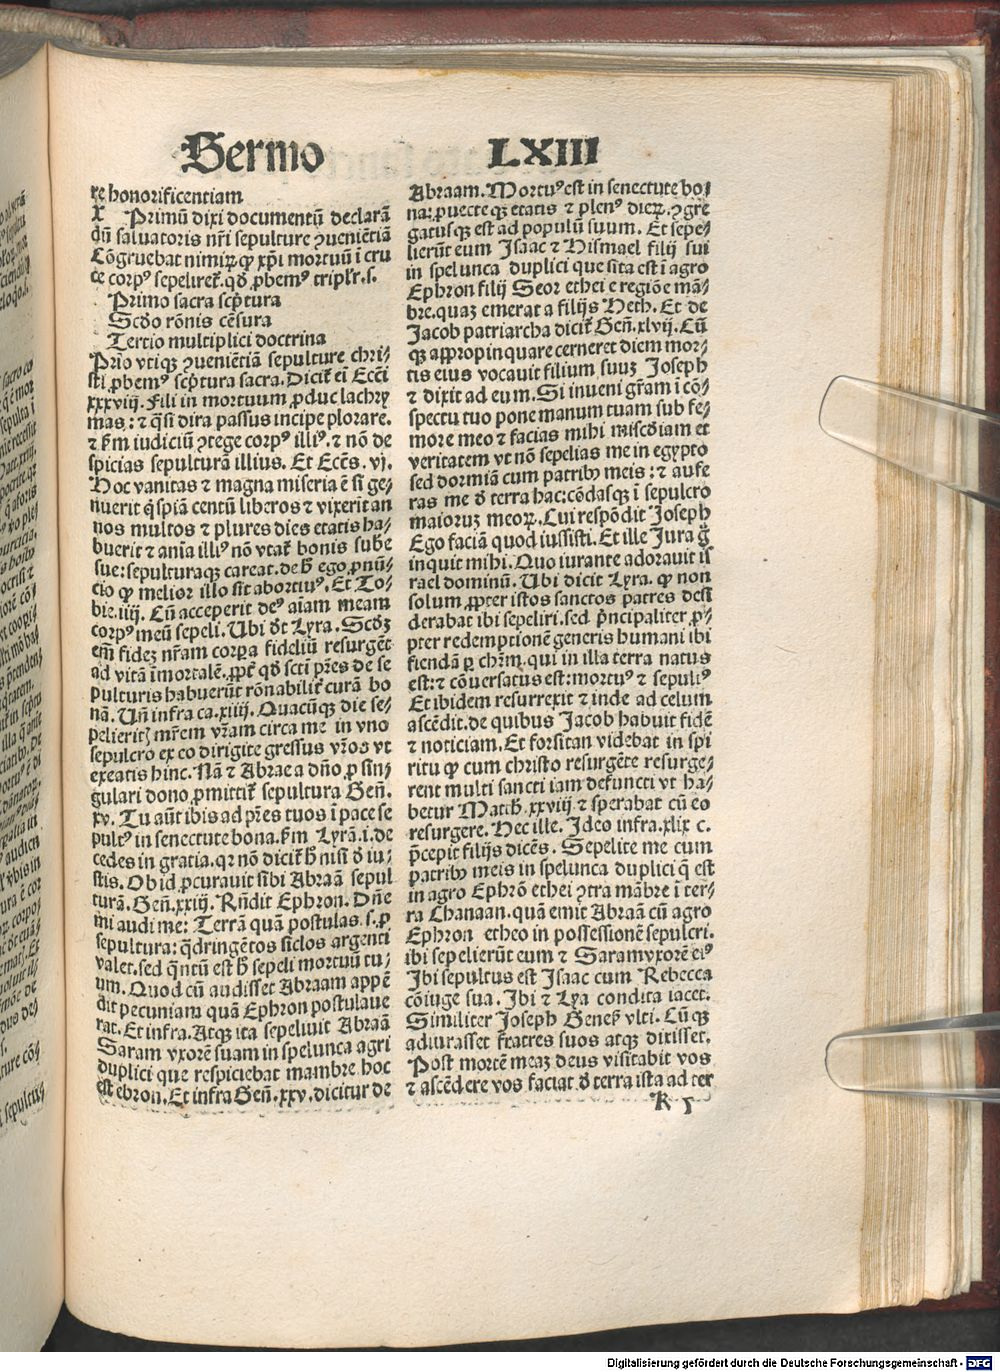 Sermo LXIII
re honorificentiam
X Primū dixi documentū declarā
dū salvatoris nr̄i sepulture ꝯueniētiā
Cōgruebat nimiꝝ ꝙ xp̄i mortuū ī cru
ce corpꝰ sepeliret᷑. qd̄ ꝓbemꝰ triplr̄. s.
Primo sacra scp̄tura
Scd̄o rōnis cēsura
Tertio multiplici doctrina
Prīo vtiqꝫ ꝯueniētiā sepulture chri⸗
sti ꝓbemꝰ scp̄tura sacra. Dicit᷑ eī Ecci
xxxviij. Fili in mortuum ꝓduc lachry
mas: ⁊ q̄si dira passus incipe plorare.
⁊ ẜm iudiciū ꝯtege corpꝰ illiꝰ. ⁊ nō de
spicias sepulturā illius. Et Eccēs. vj.
Hoc vanitas ⁊ magna miseria ē si ge⸗
nuerit q̄spiā centū liberos ⁊ vixerit an
nos multos ⁊ plures dies etatis ha⸗
buerit ⁊ anīa illiꝰ nō vtat᷑ bonis sube
sue: sepulturaqꝫ careat. de h̄ ego ꝓnū⸗
cio ꝙ melior illo sit abortiuꝰ. Et To⸗
bie. iiij. Cū acceperit deꝰ aīam meam
corpꝰ meū sepeli. Ubi dt̄ Lyra. Scd̄ꝫ
em̄ fideꝫ nr̄am corpora fideliū resurgēt
ad vitā īmortalē. ꝓpt̄ qd̄ scti pr̄es de se
pulturis habuerūt rōnabilit᷑ curā bo
nā. Un̄ infra ca. xiiij. Quacūqꝫ die se⸗
pelieritꝫ mr̄em vr̄am circa me in vno
sepulcro ex eo dirigite gressus vr̄os vt
exeatis hinc. Nā ⁊ Abrae a dn̄o ꝓ sin⸗
gulari dono ꝓmittit᷑ sepultura Gen̄.
xv. Tu aūt ibis ad pr̄es tuos ī pace se
pultꝰ in senectute bona. ẜm Lyrā. i. de
cedes in gratia. qꝛ nō dicit᷑ h̄ nisi d̄ iu⸗
stis. Ob id ꝓcurauit sibi Abraā sepul
turā. Gen̄. xxiij. Rn̄dit Ephron. Dn̄e
mi audi me: Terrā quā postulas. s. ꝓ
sepultura: q̄dringētos siclos argenti
valet. sed q̄ntū est h̄ sepeli mortuū tu⸗
um. Quod cū audisset Abraam appē
dit pecuniam quā Ephron postulaue
rat. Et infra. Atqꝫ ita sepeliuit Abraā
Saram vxorē suam in spelunca agri
duplici que respiciebat mambre hoc
est ebron. Et infra Gen̄. xxv. dicitur de
Abraam. Mortuꝰ est in senectute bo⸗
na: ꝓuecte qꝫ etatis ⁊ plenꝰ dieꝝ. ꝯgre
gatusqꝫ est ad populū suum. Et sepe⸗
lierūt eum Isaac ⁊ Hismael filij sui
in spelunca duplici que sita est ī agro
Ephron filij Seor ethei e regiōe mā⸗
bre. quaꝫ emerat a filijs Heth. Et de
Jacob patriarcha dicit᷑ Gen̄. xlvij. Cū
qꝫ appropinquare cerneret diem mor⸗
tis eius vocauit filium suuꝫ Joseph
⁊ dixit ad eum. Si inueni gr̄am ī cō⸗
spectu tuo pone manum tuam sub fe⸗
more meo ⁊ facias mihi miscd̄iam et
veritatem vt nō sepelias me in egypto
sed dormiā cum patribꝰ meis: ⁊ aufe
ras me d̄ terra hac: cōdasqꝫ ī sepulcro
maioruꝫ meoꝝ. Cui respōdit Joseph
Ego faciā quod iussisti. Et ille Jura g̊
inquit mihi. Quo iurante adorauit is
rael dominū. Ubi dicit Lyra. ꝙ non
solum ꝓpter istos sanctos patres desi
derabat ibi sepeliri. sed p̄ncipaliter ꝓ⸗
pter redemptionē generis humani ibi
fiendā ꝑ chr̄m. qui in illa terra natus
est: ⁊ cōuersatus est: mortuꝰ ⁊ sepultꝰ
Et ibidem resurrexit ⁊ inde ad celum
ascēdit. de quibus Jacob habuit fidē
⁊ noticiam. Et forsitan videbat in spi
ritu ꝙ cum christo resurgēte resurge⸗
rent multi sancti iam defuncti vt ha⸗
betur Matth. xxviij ⁊ sperabat cū eo
resurgere. Hec ille. Ideo infra. xlix c.
p̄cepit filijs dicēs. Sepelite me cum
patribꝰ meis in spelunca duplici q̄ est
in agro Ephrō ethei ꝯtra mābre ī ter⸗
ra Chanaan. quā emit Abraā cū agro
Ephron etheo in possessionē sepulcri.
ibi sepelierūt eum ⁊ Saram vxorē eiꝰ
Ibi sepultus est Isaac cum Rebecca
cōiuge sua. Ibi ⁊ Lya condita iacet.
Similiter Joseph Genes̄ vlti. Cū qꝫ
adiurasset fratres suos atqꝫ dixisset.
Post mortē meaꝫ deus visitabit vos
⁊ ascēdere vos faciat d̄ terra ista ad ter
K 5
Digitalisierung gefördert durch die Deutsche Forschungsgemeinschaft - DFG